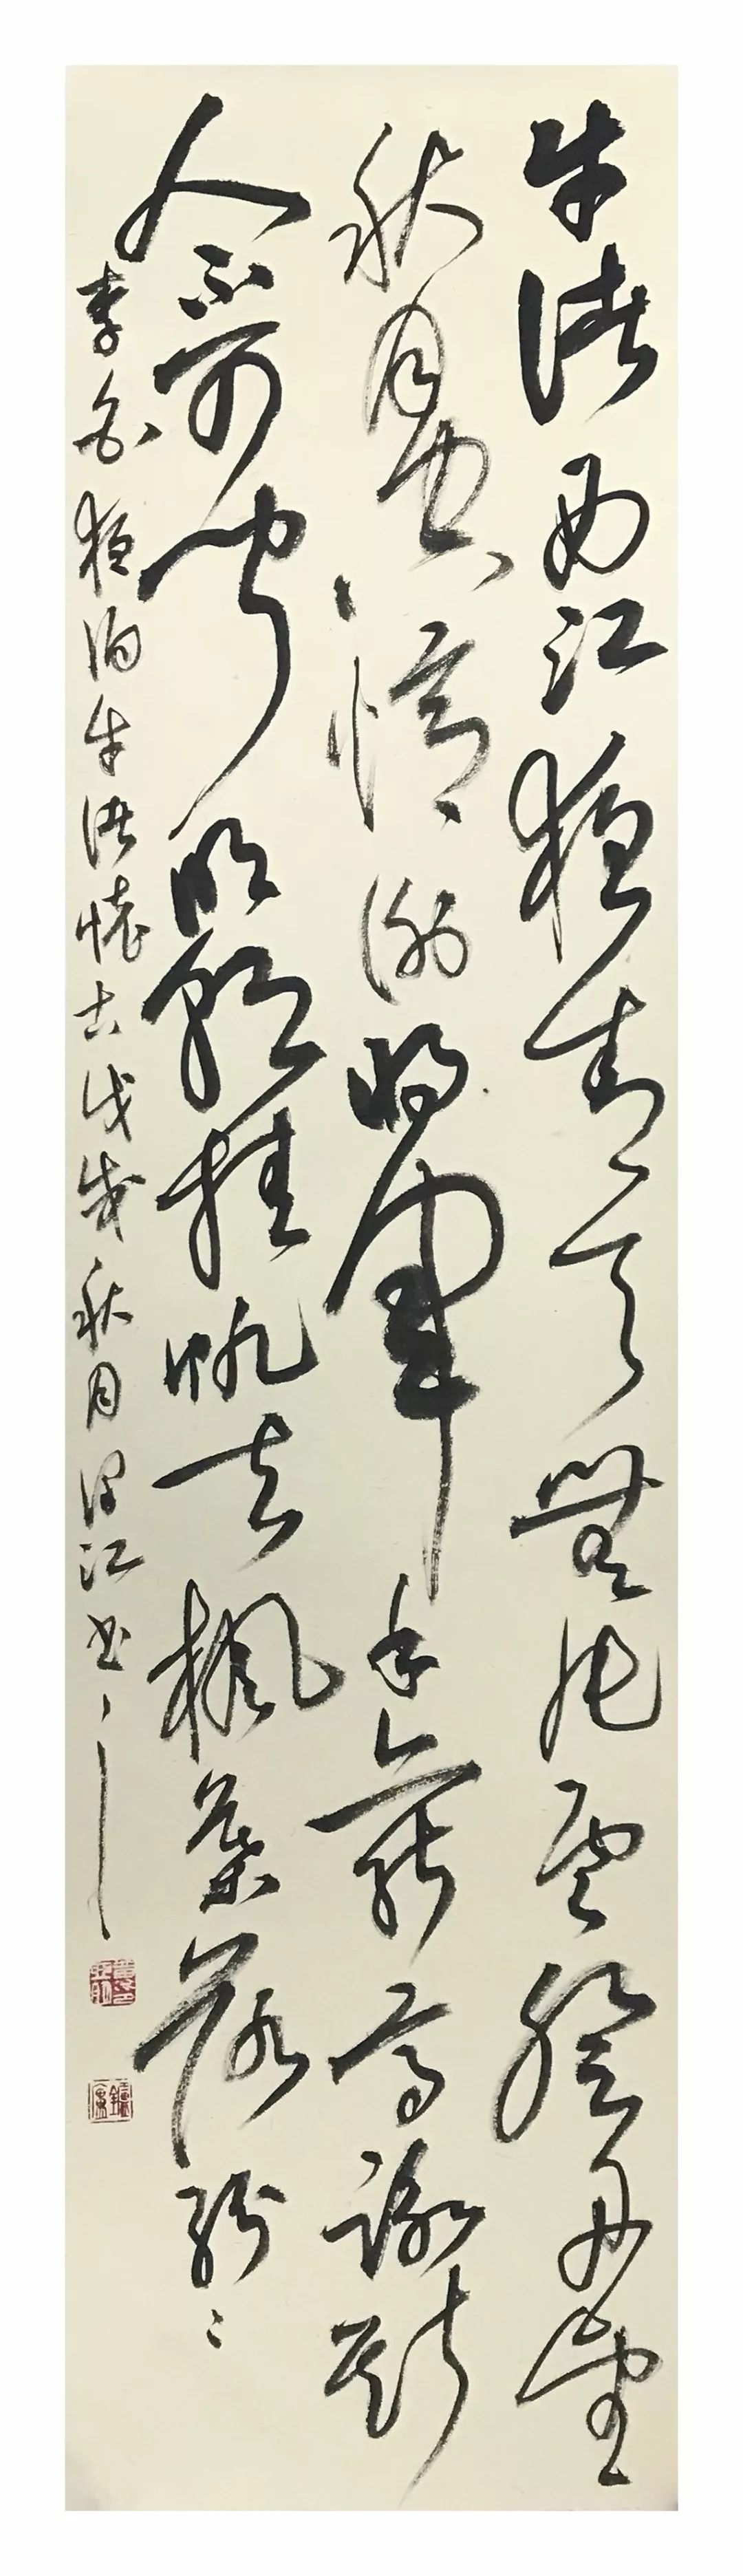 牛渚西江夜青天無片雲登舟望
秋月空憶謝將軍余亦能高詠斯
人不可聞明朝挂帆去楓葉落紛〻
李白夜泊牛渚懷古戊戌秋月江書